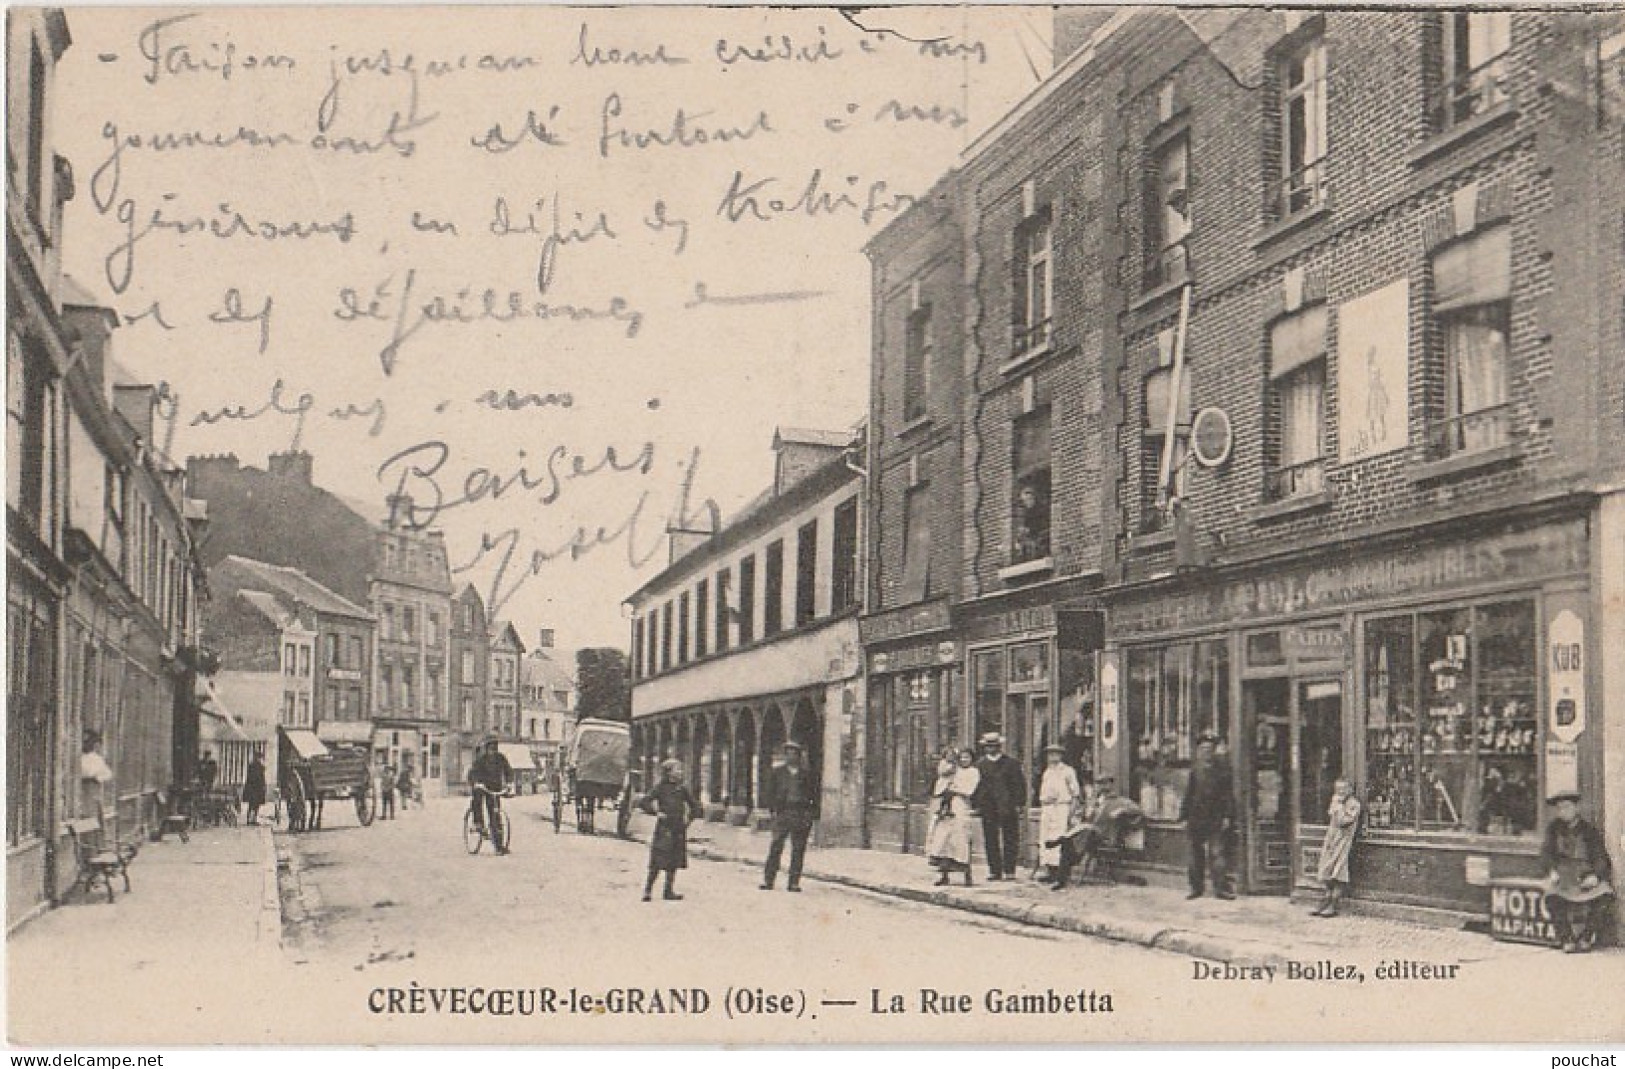 - Faisons jusqu'au bout crédit à nos
gouvernants et surtout à nos
généraux, en dépit des trahisons
et des défaillances de
quelques-uns.
Joseph
CRÈVECŒUR-le-GRAND (Oise). — La Rue Gambetta
Debray Bollez, éditeur
KUB
MOTO
NAPHTA
www.delcampe.net
pouchat